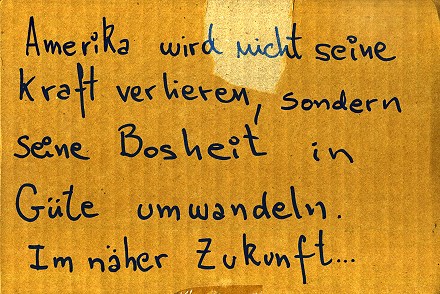 Amerika wird nicht seine
Kraft verlieren, sondern
seine Bosheit in
Güte umwandeln.
Im näher Zukunft...